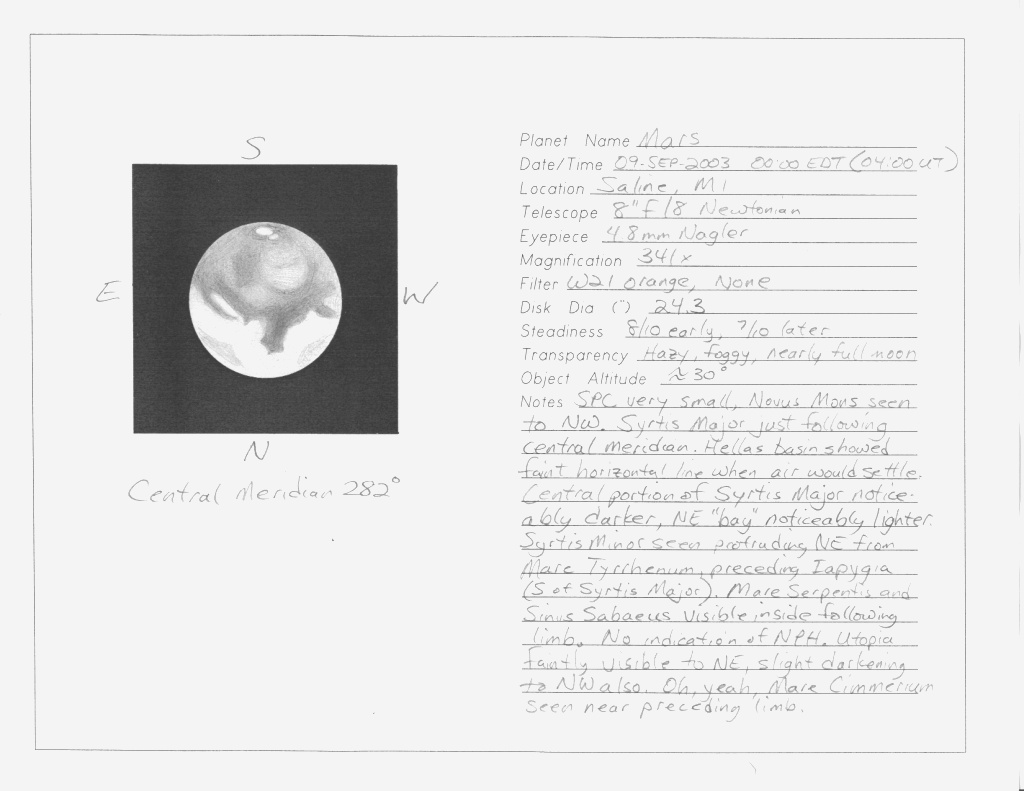 S
E
W
N
Central Meridian 282°
Planet Name Mars
Date/Time 09-SEP-2003 00:00 EDT (04:00 UT)
Location Saline, MI
Telescope 8" f/8 Newtonian
Eyepiece 4.8mm Nagler
Magnification 341x
Filter W21 Orange, None
Disk Dia (") 24.3
Steadiness 8/10 early, 7/10 later
Transparency Hazy, foggy, nearly full moon
Object Altitude ≈30°
Notes SPC very small, Novus Mons seen
to NW. Syrtis Major just following
central meridian. Hellas basin showed
faint horizontal line when air would settle.
Central portion of Syrtis Major notice-
ably darker, NE "bay" noticeably lighter.
Syrtis Minor seen protruding NE from
Mare Tyrrhenum, preceding Iapygia
(S of Syrtis Major). Mare Serpentis and
Sinus Sabaeus visible inside following
limb. No indication of NPH. Utopia
faintly visible to NE, slight darkening
to NW also. Oh, yeah, Mare Cimmerium
seen near preceding limb.